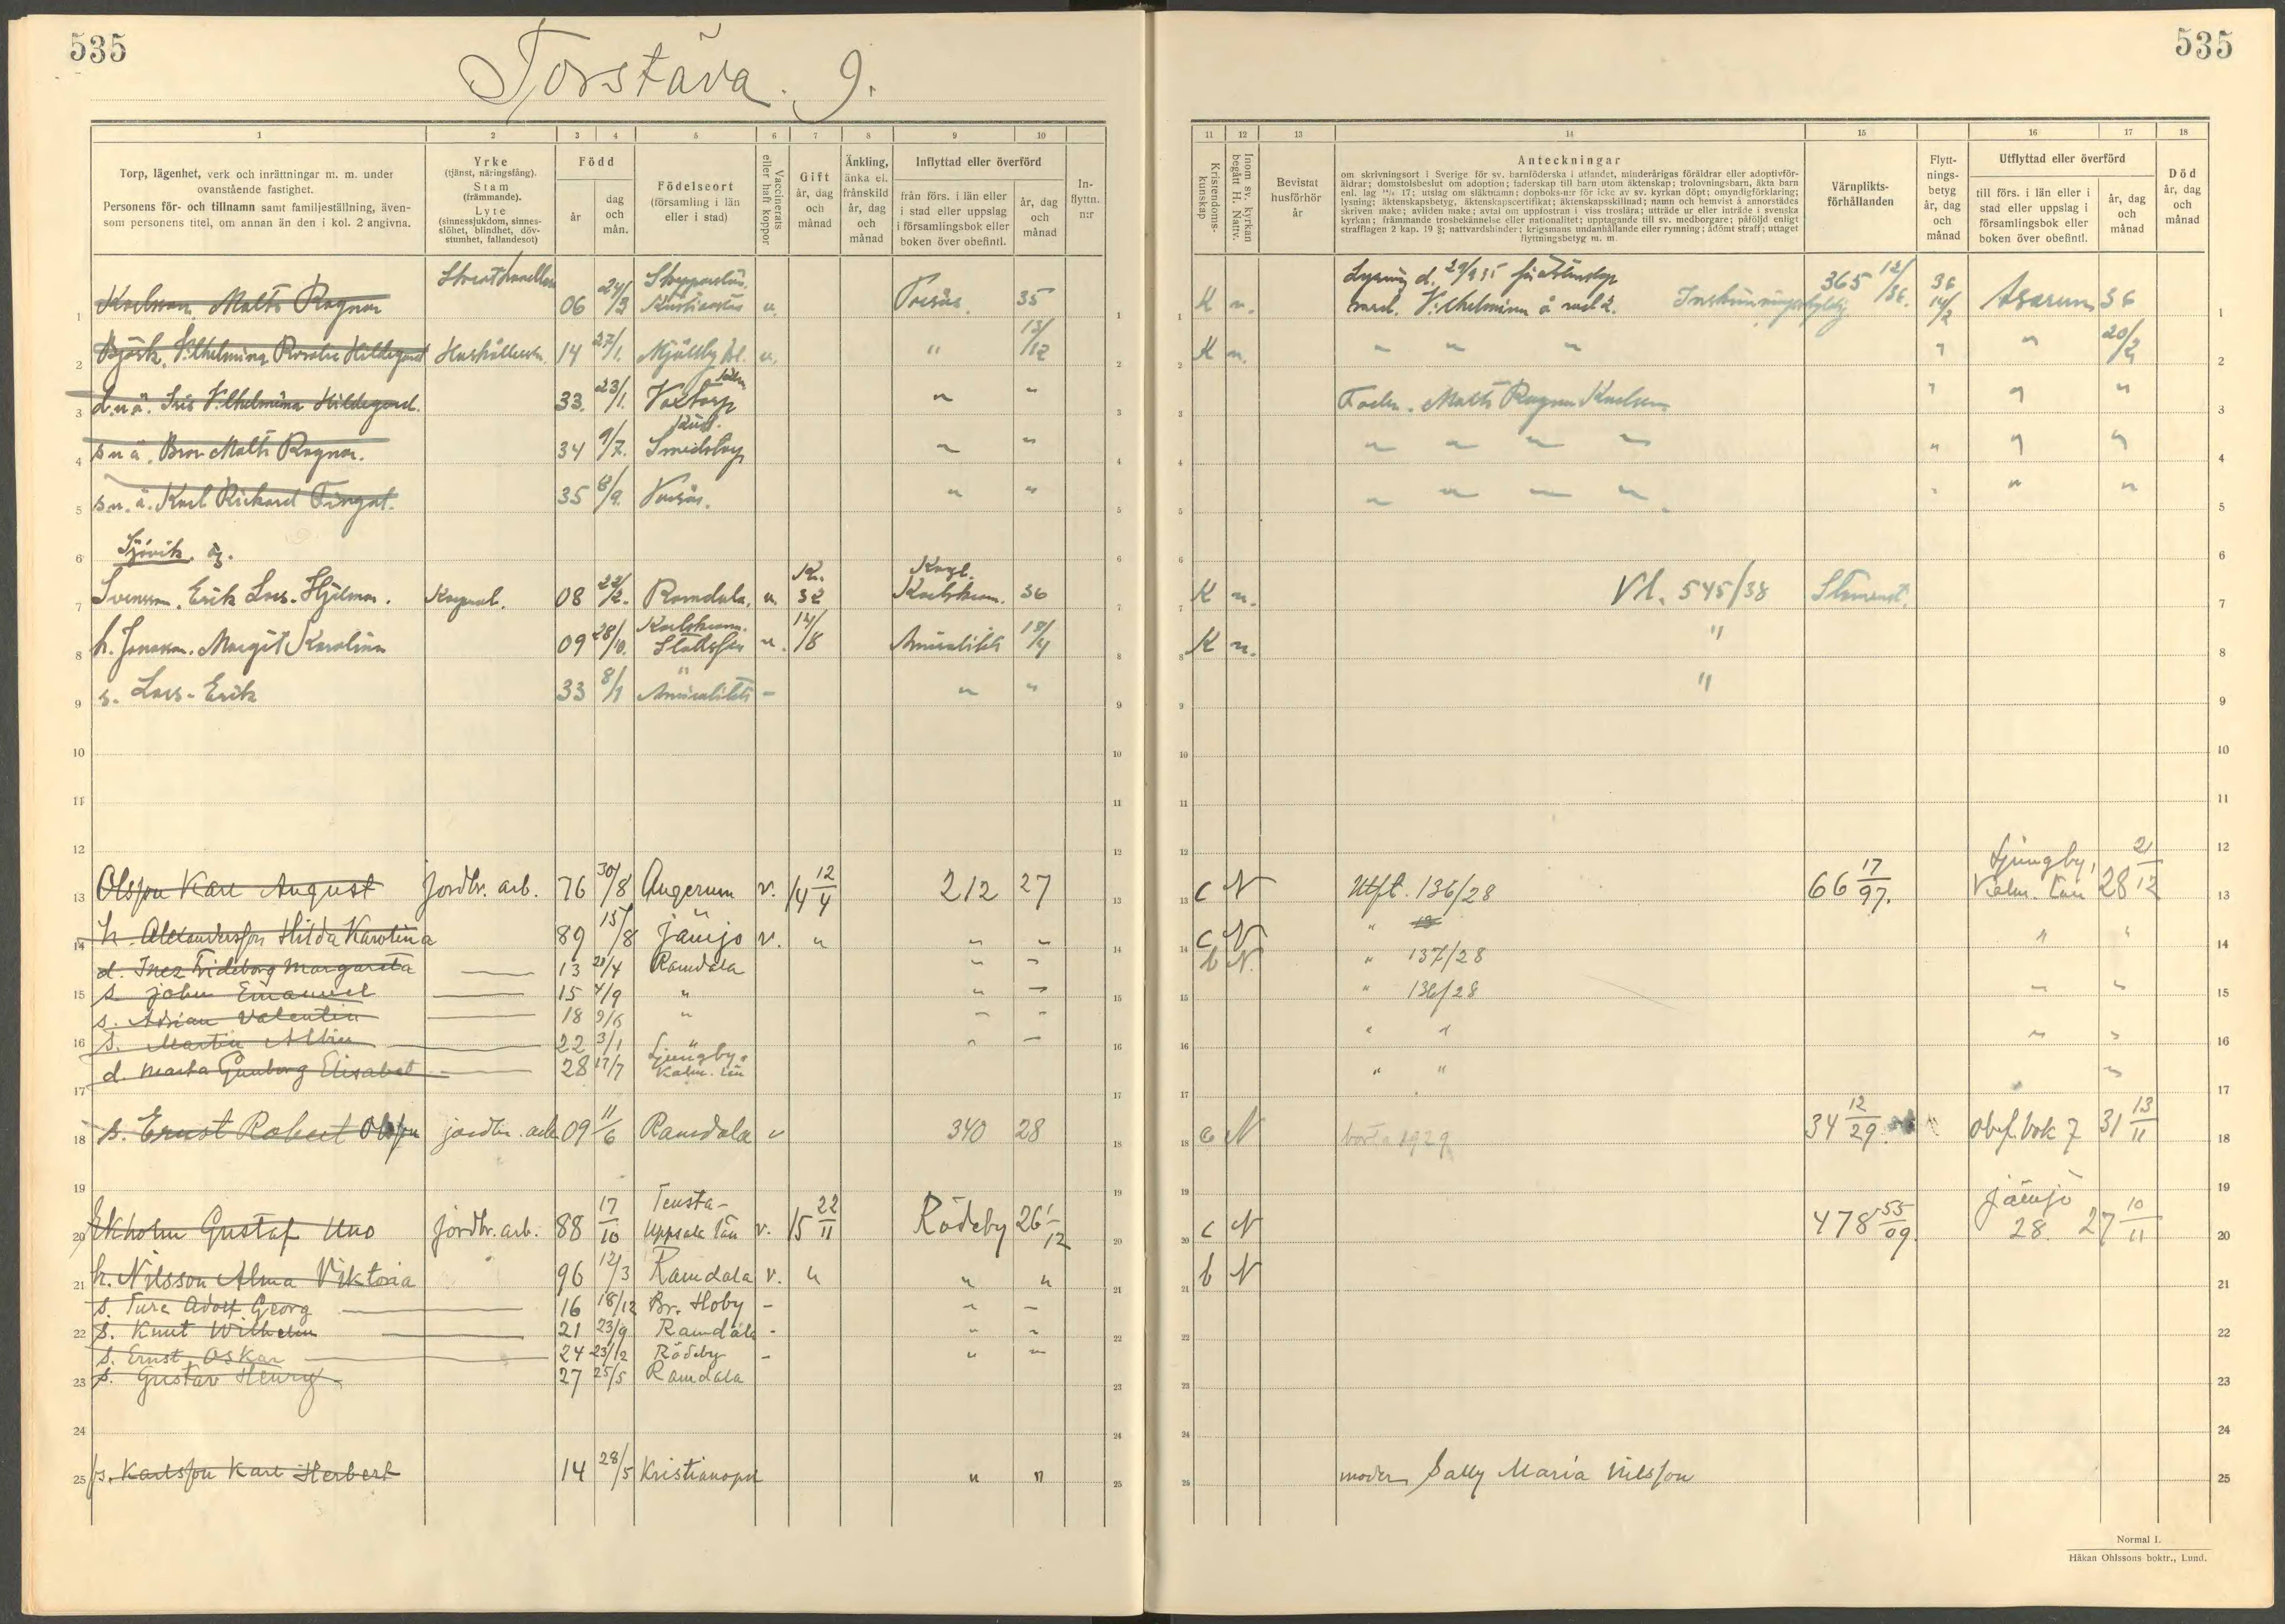 535
535
Torstäva. 9.
1 2 3 4 5 6 7 8 9 10
Torp, lägenhet, verk och inrättningar m. m. under
ovanstående fastighet.
Personens för- och tillnamn samt familjeställning, även-
som personens titel, om annan än den i kol. 2 angivna.
Yrke
(tjänst, näringsfång).
Stam
(främmande).
Lyte
(sinnessjukdom, sinnes-
slöhet, blindhet, döv-
stumhet, fallandesot)
Född
år
dag
och
mån.
Födelseort
(församling i län
eller i stad)
Vaccinerats
eller haft koppor
Gift
år, dag
och
månad
Änkling,
änka el.
frånskild
år, dag
och
månad
Inflyttad eller överförd
från förs. i län eller
i stad eller uppslag
i församlingsbok eller
boken över obefintl.
år, dag
och
månad
In-
flyttn.
n:r
11 12 13 14 15 16 17 18
Kristendoms-
kunskap
Inom sv. kyrkan
begått H. Nattv.
Bevistat
husförhör
år
Anteckningar
om skrivningsort i Sverige för sv. barnföderska i utlandet, minderårigas föräldrar eller adoptivför-
äldrar; domstolsbeslut om adoption; faderskap till barn utom äktenskap; trolovningsbarn, äkta barn
enl. lag 17; utslag om släktnamn; dopboks-n:r för icke av sv. kyrkan döpt; omyndigförklaring;
lysning; äktenskapsbetyg, äktenskapscertifikat; äktenskapsskillnad; namn och hemvist å annorstädes
skriven make; avliden make; avtal om uppfostran i viss troslära; utträde ur eller inträde i svenska
kyrkan; främmande trosbekännelse eller nationalitet; upptagande till sv. medborgare; påföljd enligt
strafflagen 2 kap. 19 §; nattvardshinder; krigsmans undanhållande eller rymning; ådömt straff; uttaget
flyttningsbetyg m. m.
Värnplikts-
förhållanden
Flytt-
nings-
betyg
år, dag
och
månad
Utflyttad eller överförd
till förs. i län eller i
stad eller uppslag i
församlingsbok eller
boken över obefintl.
år, dag
och
månad
Död
år, dag
och
månad
1 Karlsson, Malte Ragnar 06 24/3 Torsås 35 K n. Lysning d. 29/9 35 365 12/36 36 14/2 Asarum 36
2 Björk, Vilhelmina Rosalie Hildegard 14 27/1 Mjällby Bl. " 13/12 K n. " " " 20/2
3 d. u. ä. Iris Vilhelmina Hildegard 33 23/1 Voxtorp " " Fader Malte Ragnar Karlsson " " "
4 s. u. ä. Bror Malte Ragnar. 34 9/7 " " " " " " " " "
5 s. u. ä. Karl Richard Fingal. 35 8/9 Torsås. " " " " " " " " "
6 Sjövik. äg.
7 Svensson, Erik Lars-Hjalmar. 08 22/2 Ramdala, 32 36 K n. Vl. 545/38
8 h. Jonasson, Margit Karolina 09 28/10 14/8 Amiralitets 18/4 K n. "
9 s. Lars-Erik 33 8/1 Amiralitets - " " "
10
11
12
13 Olsson Karl August Jordbr. arb. 76 30/8 Augerum v. 14 12/4 212 27 c N Utft. 136/28 66 17/97. Ljungby, Kalm. län 28 21/12
14 h. Alexandersson Hilda Karolina 89 15/8 Jämjö v. " " " c N " " "
d. Inez Fridborg Margareta 13 20/4 Ramdala " " b N. " 137/28
15 s. John Emanuel 15 4/9 " " " " 136/28 " "
s. Adrian Valentin 18 9/6 " " " " "
16 s. Martin Albin 22 3/1 " " " " "
d. Marta Gunborg Elisabet 28 17/7 Ljungby, Kalm. län " " "
17
18 s. Ernst Robert Olsson jordbr. arb. 09 11/6 Ramdala v 340 28 c N borta 1929 34 12/29. obef. bok 7 31 13/11
19
20 Ekholm Gustaf Uno Jordbr. arb. 88 17/10 Tensta - Uppsala län v. 15 22/11 Rödeby 26 1/12 c N 478 55/09. Jämjö 28. 27 10/11
21 h. Nilsson Alma Viktoria 96 12/3 Ramdala v. " " " b N
s. Ture Adolf Georg 16 18/12 Br. Hoby - " "
22 s. Knut Wilhelm 21 23/9 Ramdala - " "
s. Ernst Oskar 24 23/12 Rödeby - " "
23 s. Gustav Henry 27 25/5 Ramdala
24
25 fs. Karlsson Karl Herbert 14 28/5 Kristianopel " " moder Sally Maria Nilsson
Normal I.
Håkan Ohlssons boktr., Lund.